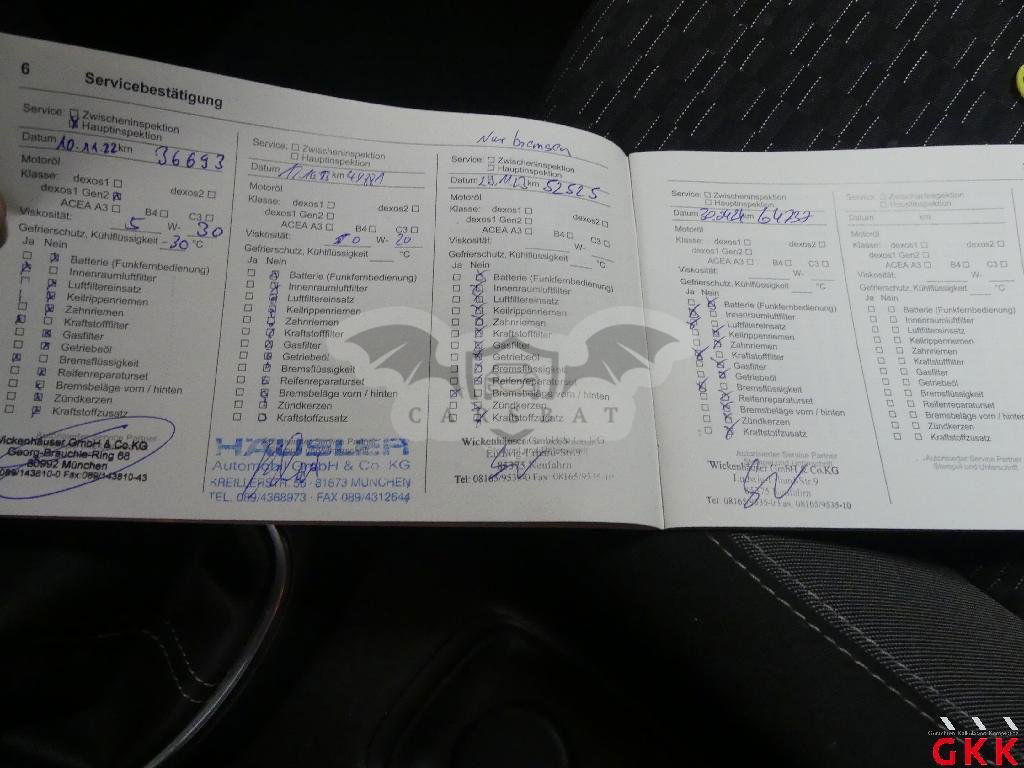 6 Servicebestätigung
Service: Zwischeninspektion
Hauptinspektion
Datum 10.11.22 km 36693
Motoröl
Klasse: dexos1
dexos1 Gen2 dexos2
ACEA A3 B4 C3
Viskosität: 5 W- 30
Gefrierschutz, Kühlflüssigkeit -30 °C
Ja Nein
Batterie (Funkfernbedienung)
Innenraumluftfilter
Luftfiltereinsatz
Keilrippenriemen
Zahnriemen
Kraftstofffilter
Gasfilter
Getriebeöl
Bremsflüssigkeit
Reifenreparaturset
Bremsbeläge vorn / hinten
Zündkerzen
Kraftstoffzusatz
Wickenhäuser GmbH & Co.KG
Georg-Brauchle-Ring 68
80992 München
089/143810-0 Fax:089/143810-43
Service: Zwischeninspektion
Hauptinspektion
Datum km
Motoröl
Klasse: dexos1
dexos1 Gen2 dexos2
ACEA A3 B4 C3
Viskosität: 0 W- 20
Gefrierschutz, Kühlflüssigkeit °C
Ja Nein
Batterie (Funkfernbedienung)
Innenraumluftfilter
Luftfiltereinsatz
Keilrippenriemen
Zahnriemen
Kraftstofffilter
Gasfilter
Getriebeöl
Bremsflüssigkeit
Reifenreparaturset
Bremsbeläge vorn / hinten
Zündkerzen
Kraftstoffzusatz
HÄUSLER
Automobil GmbH & Co. KG
KREILLERSTR. · 81673 MÜNCHEN
TEL. 089/4368973 · FAX 089/4312644
Nur bremsen
Service: Zwischeninspektion
Hauptinspektion
Datum km 52525
Motoröl
Klasse: dexos1
dexos1 Gen2 dexos2
ACEA A3 B4 C3
Viskosität: W-
Gefrierschutz, Kühlflüssigkeit °C
Ja Nein
Batterie (Funkfernbedienung)
Innenraumluftfilter
Luftfiltereinsatz
Keilrippenriemen
Zahnriemen
Kraftstofffilter
Gasfilter
Getriebeöl
Bremsflüssigkeit
Reifenreparaturset
Bremsbeläge vorn / hinten
Zündkerzen
Kraftstoffzusatz
Wickenhäuser GmbH & Co.KG
85375 Neufahrn
Tel: 08165/9535-0 Fax 08165/9535-10
Service: Zwischeninspektion
Hauptinspektion
Datum km
Motoröl
Klasse: dexos1 dexos2
dexos1 Gen2
ACEA A3 B4 C3
Viskosität: W-
Gefrierschutz, Kühlflüssigkeit °C
Ja Nein
Batterie (Funkfernbedienung)
Innenraumluftfilter
Luftfiltereinsatz
Keilrippenriemen
Zahnriemen
Kraftstofffilter
Gasfilter
Getriebeöl
Bremsflüssigkeit
Reifenreparaturset
Bremsbeläge vorn / hinten
Zündkerzen
Kraftstoffzusatz
Autorisierter Service Partner
Wickenhäuser GmbH & Co.KG
Tel 08165/9535-0 Fax. 08165/9535-10
Service: Zwischeninspektion
Hauptinspektion
Datum km
Motoröl
Klasse: dexos1 dexos2
dexos1 Gen2
ACEA A3 B4 C3
Viskosität: W-
Gefrierschutz, Kühlflüssigkeit °C
Ja Nein
Batterie (Funkfernbedienung)
Innenraumluftfilter
Luftfiltereinsatz
Keilrippenriemen
Zahnriemen
Kraftstofffilter
Gasfilter
Getriebeöl
Bremsflüssigkeit
Reifenreparaturset
Bremsbeläge vorn / hinten
Zündkerzen
Kraftstoffzusatz
Autorisierter Service Partner
Stempel und Unterschrift
CARBAT
GKK